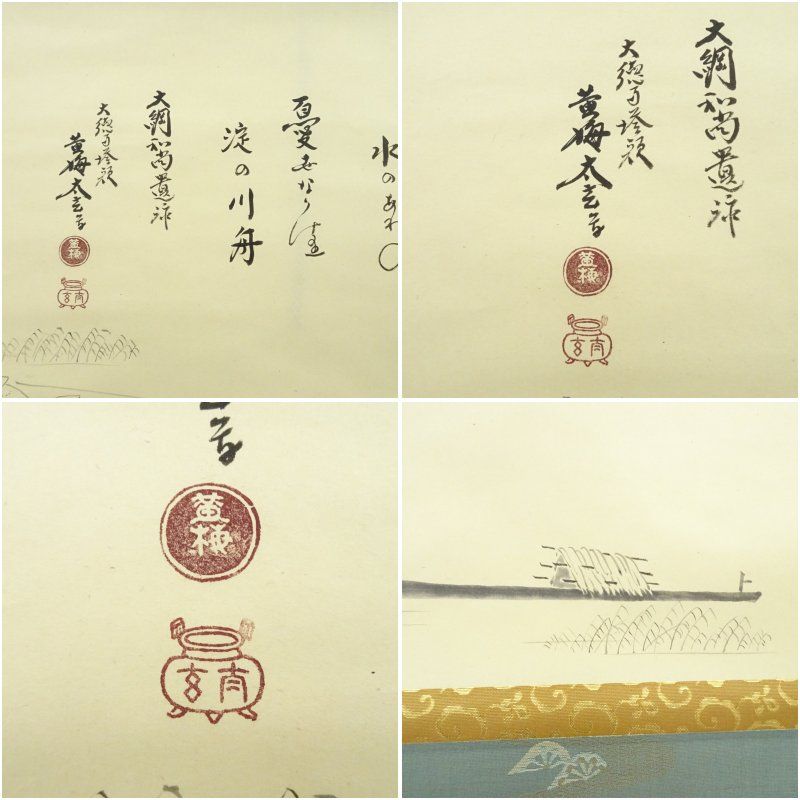 水のあわ
憂世なり
淀の川舟
大綱和尚遺詠
大徳寺塔頭
黄梅太玄書
黄梅
大綱和尚遺詠
大徳寺塔頭
黄梅太玄書
黄梅
書
黄梅